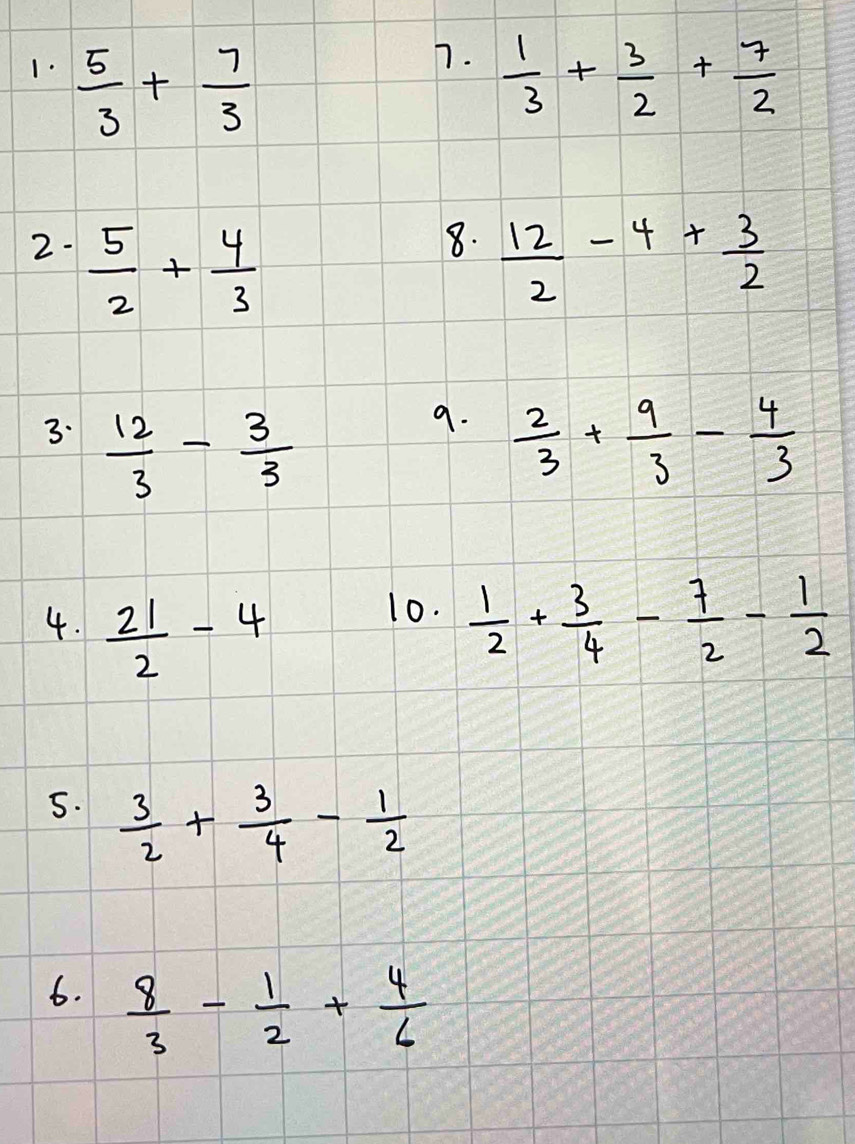 1. 5/3 + 7/3
2- 5/2 + 4/3
3. 12/3 - 3/3
4. 21/2 - 4
5. 3/2 + 3/4 - 1/2
6. 8/3 - 1/2 + 4/6
7. 1/3 + 3/2 + 7/2
8. 12/2 - 4 + 3/2
9. 2/3 + 9/3 - 4/3
10. 1/2 + 3/4 - 7/2 - 1/2